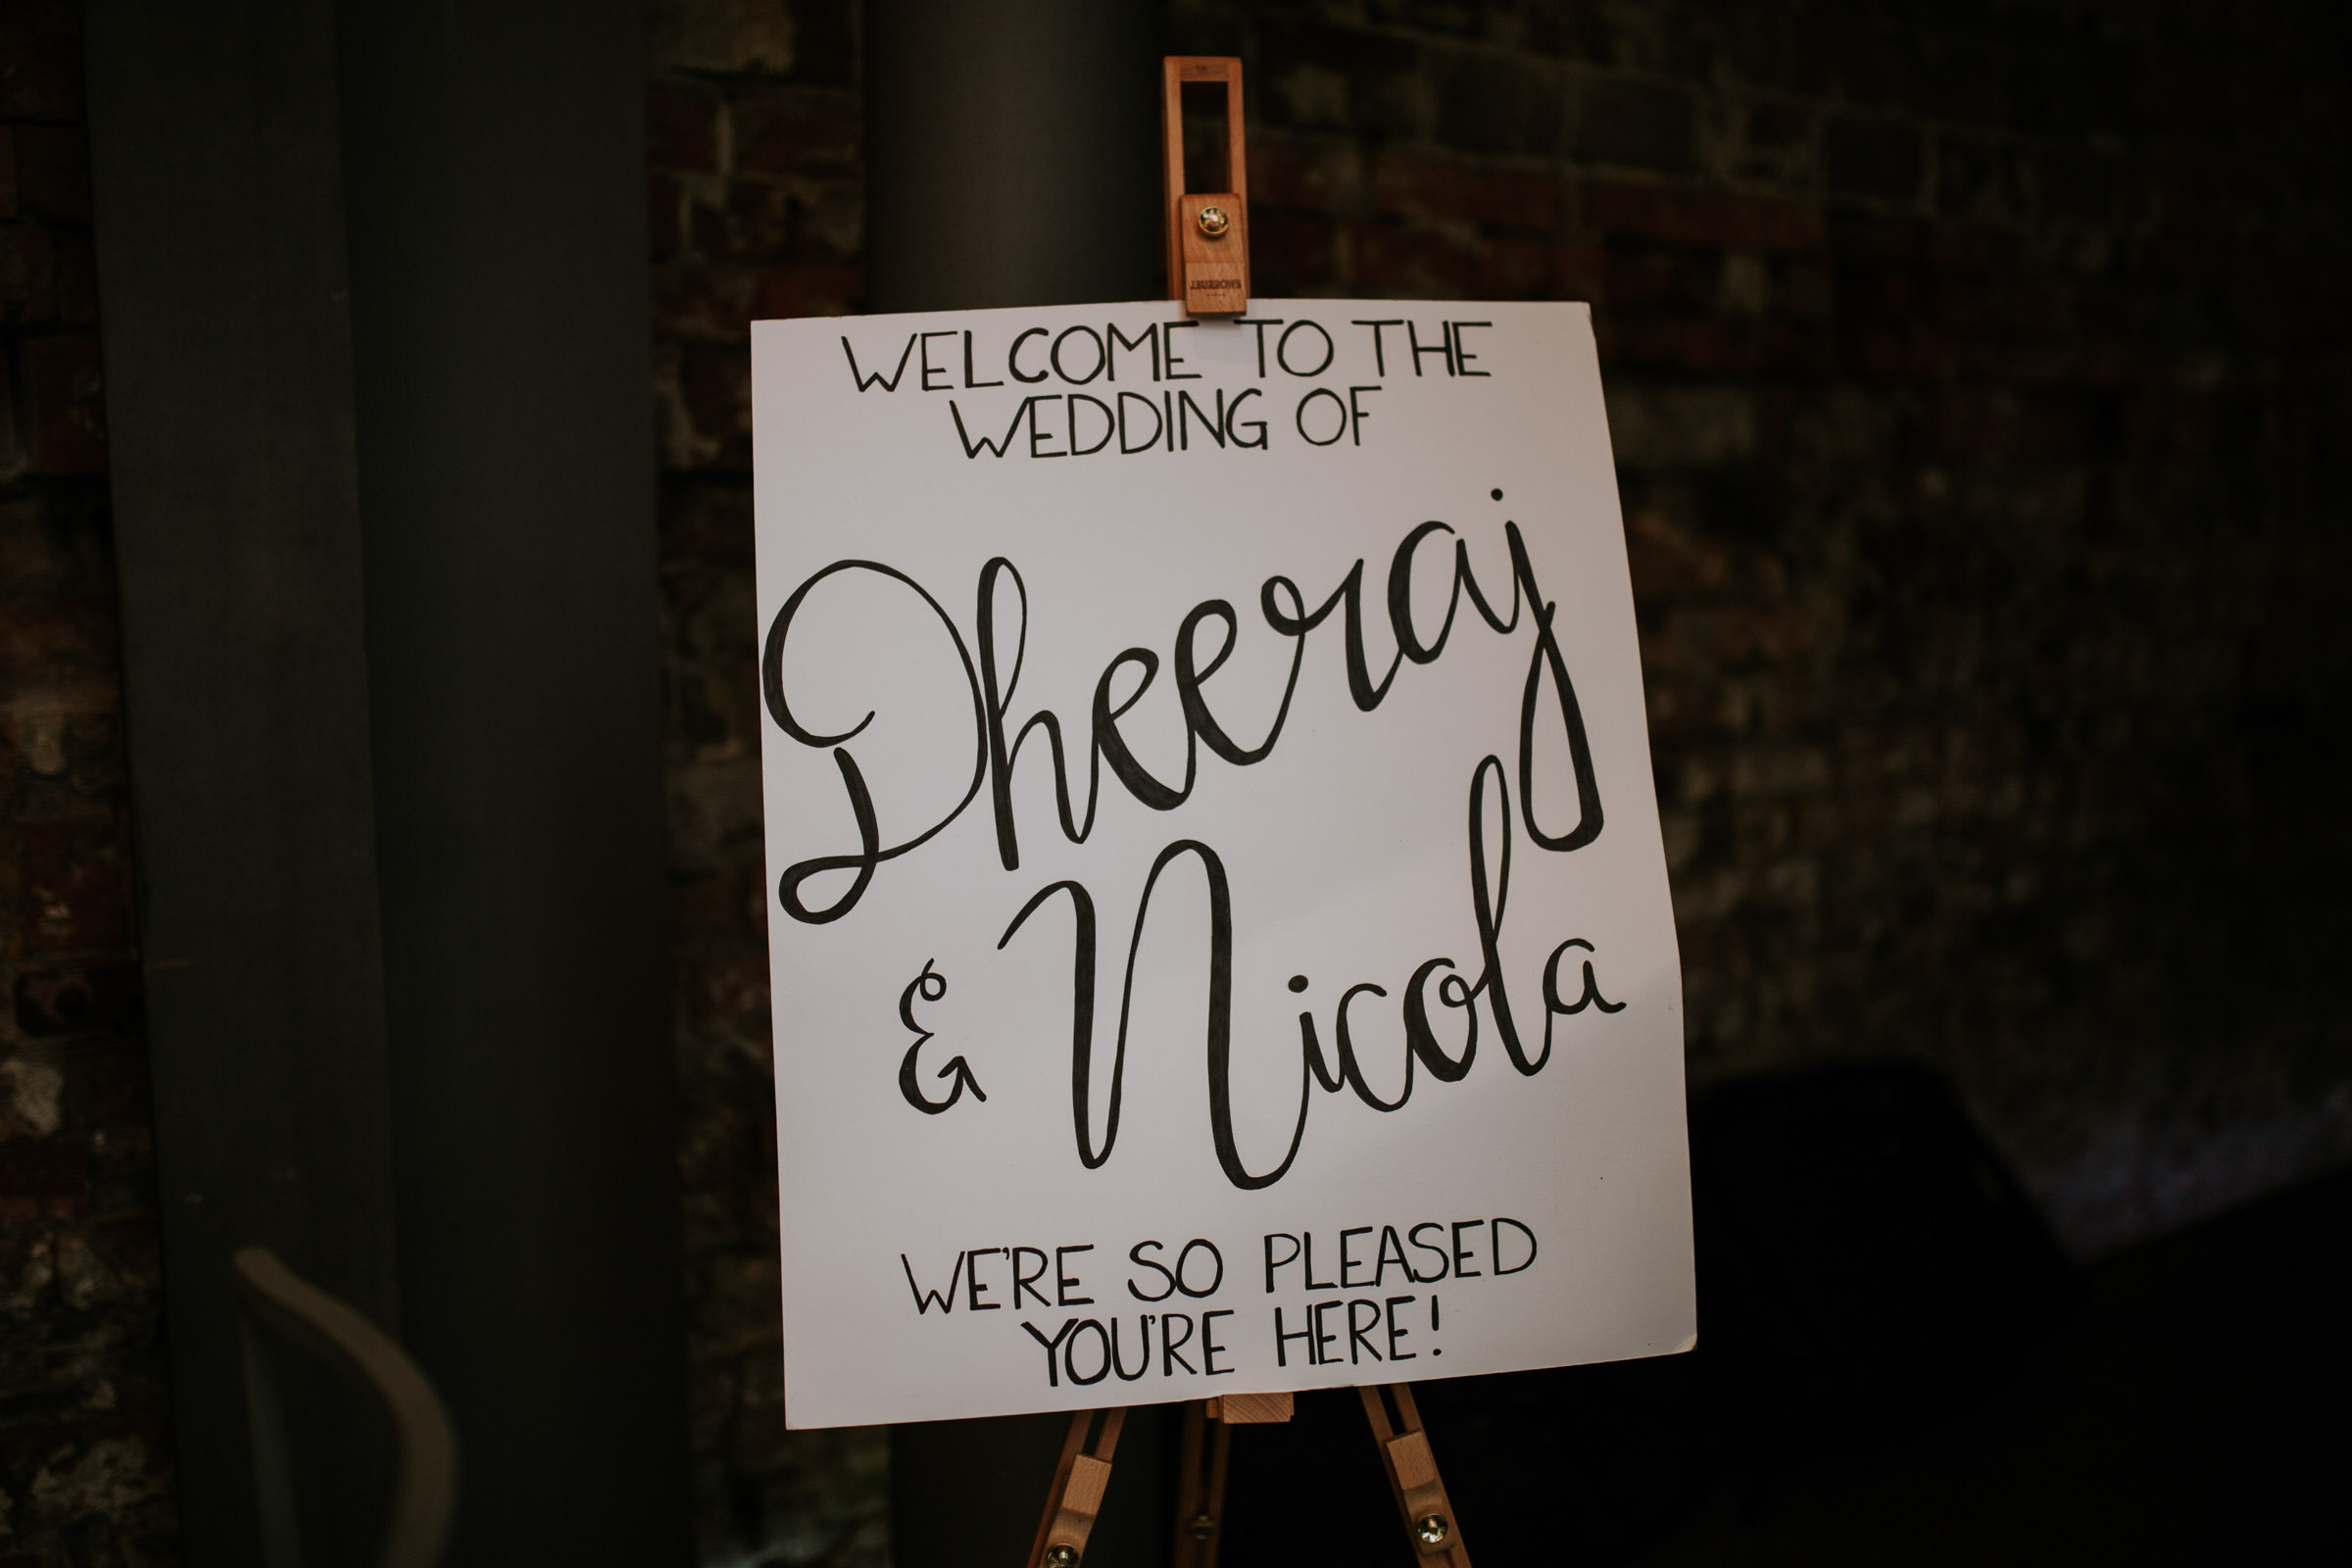 J.BURROWS
WELCOME TO THE
WEDDING OF
Dheeraj
& Nicola
WE'RE SO PLEASED
YOU'RE HERE!